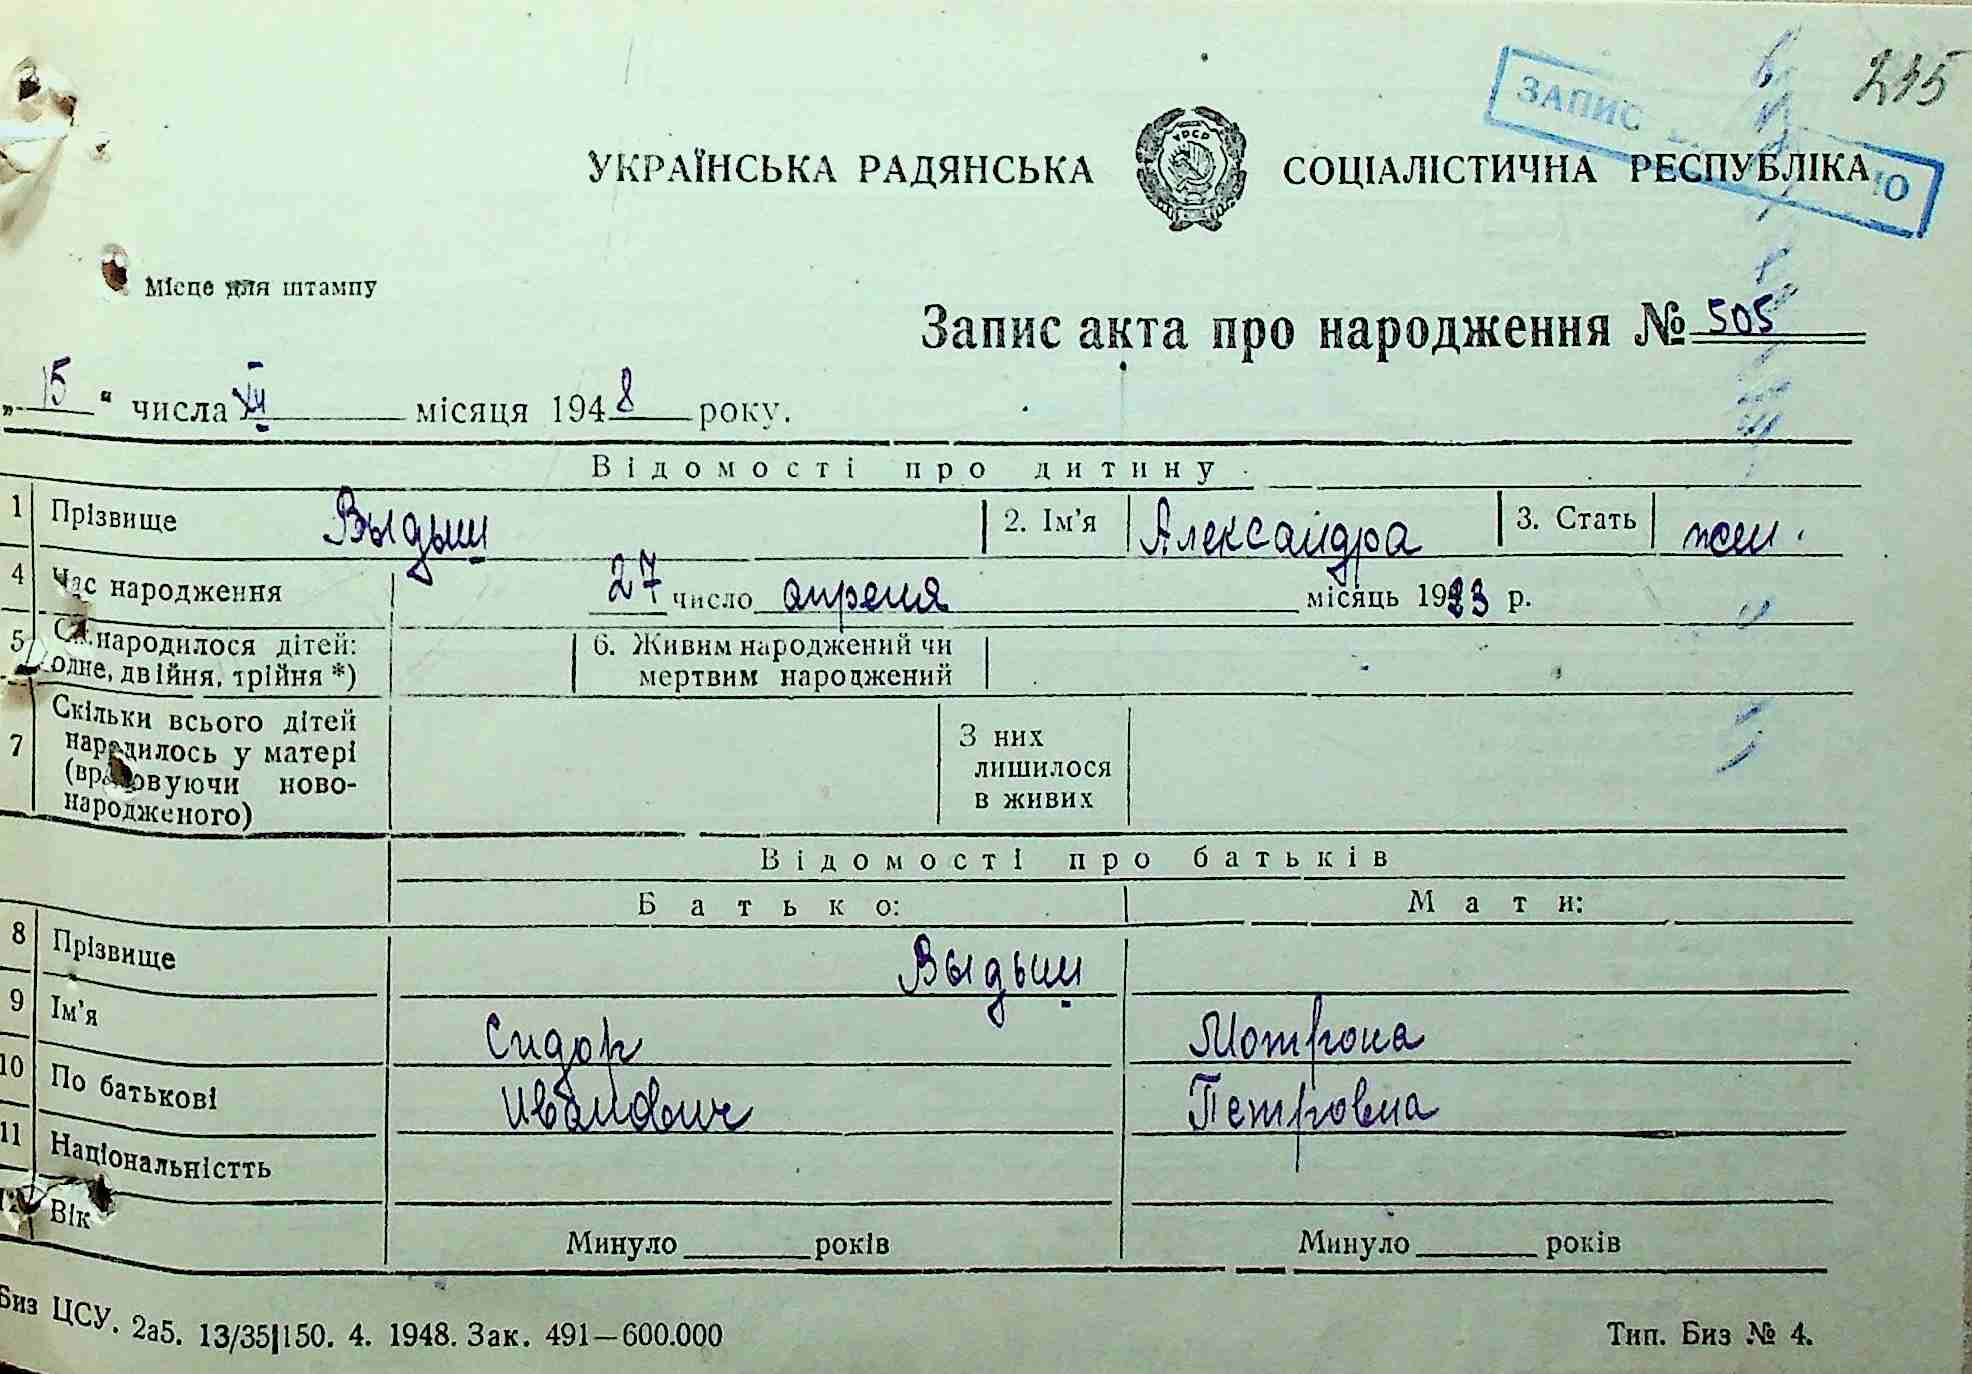 235
ЗАПИС Ю
УРСР
УКРАЇНСЬКА РАДЯНСЬКА СОЦІАЛІСТИЧНА РЕСПУБЛІКА
Місце для штампу
Запис акта про народження № 505
„15“ числа XII місяця 1948 року.
Відомості про дитину
1 Прізвище Выдыш 2. Ім'я Александра 3. Стать жен.
4 Час народження 27 число апреля місяць 1923 р.
5 Ск. народилося дітей: одне, двійня, трійня *) 6. Живим народжений чи мертвим народжений
7 Скільки всього дітей народилось у матері (враховуючи новонародженого) З них лишилося в живих
Відомості про батьків
Батько: Мати:
8 Прізвище Выдыш
9 Ім'я Сидор Мотрона
10 По батькові Иванович Петровна
11 Національністть
12 Вік Минуло років Минуло років
Биз ЦСУ. 2а5. 13/35|150. 4. 1948. Зак. 491—600.000 Тип. Биз № 4.